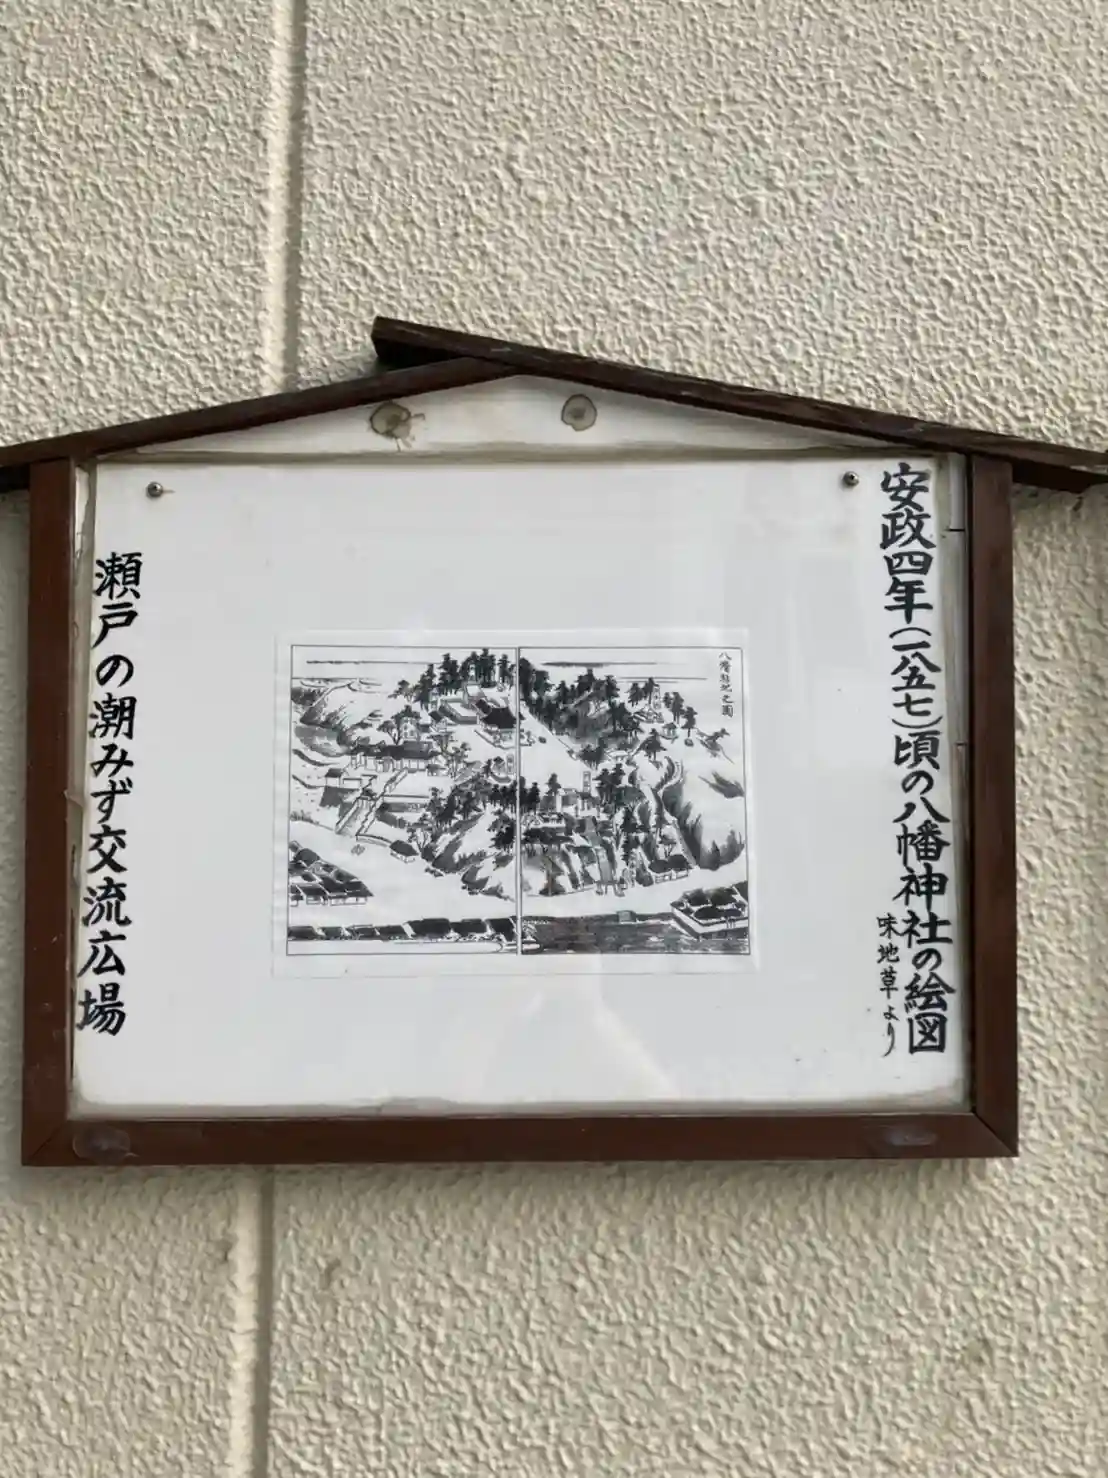 安政四年(一八五七)頃の八幡神社の絵図
味地草より
瀬戸の潮みず交流広場